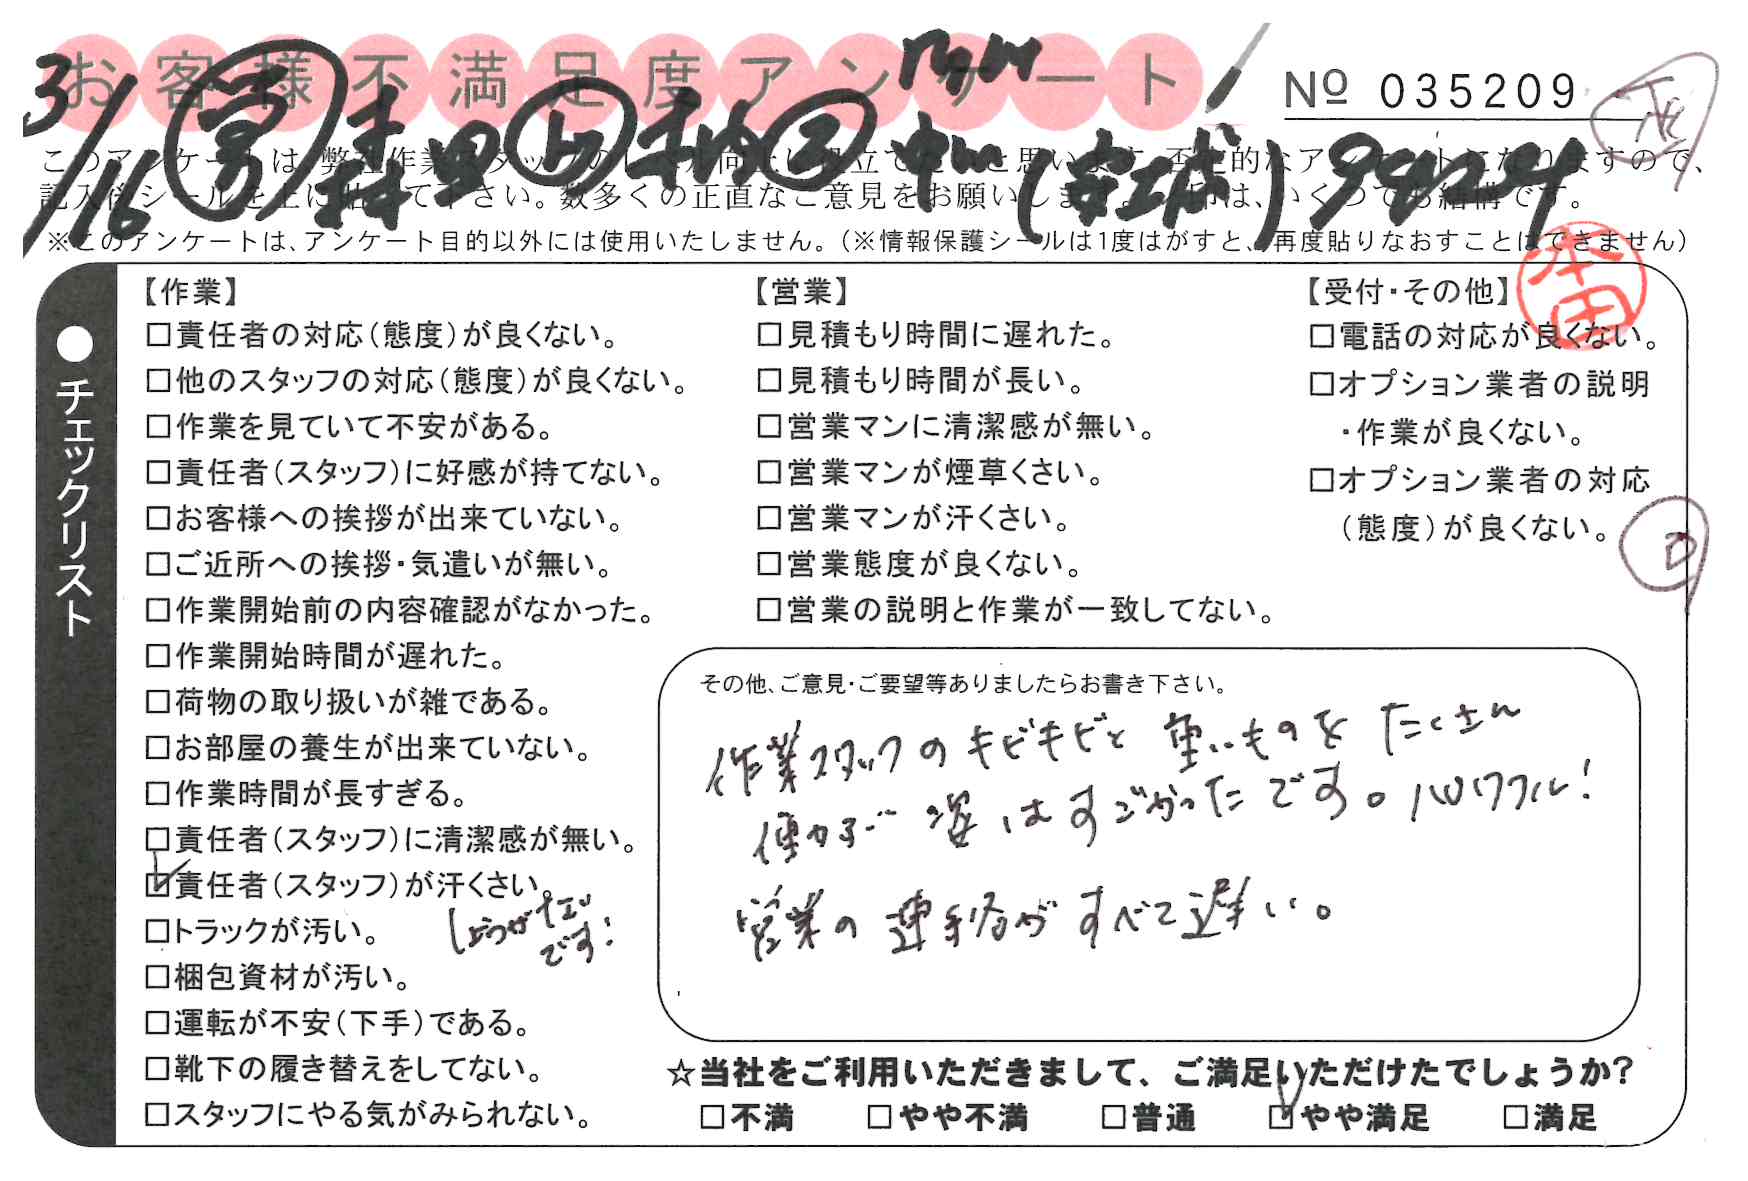 お客様不満足度アンケート
№ 035209
3/16
このアンケートは、弊社作業スタッフのレベル向上に役立てたいと思います。否定的なアンケートになりますので、
記入後シールを上に貼って下さい。数多くの正直なご意見をお願いします。レ印は、いくつでも結構です。
※このアンケートは、アンケート目的以外には使用いたしません。（※情報保護シールは1度はがすと、再度貼りなおすことはできません）
本田
●チェックリスト
【作業】
□責任者の対応（態度）が良くない。
□他のスタッフの対応（態度）が良くない。
□作業を見ていて不安がある。
□責任者（スタッフ）に好感が持てない。
□お客様への挨拶が出来ていない。
□ご近所への挨拶・気遣いが無い。
□作業開始前の内容確認がなかった。
□作業開始時間が遅れた。
□荷物の取り扱いが雑である。
□お部屋の養生が出来ていない。
□作業時間が長すぎる。
□責任者（スタッフ）に清潔感が無い。
☑責任者（スタッフ）が汗くさい。
しょうがナイ
です！
□トラックが汚い。
□梱包資材が汚い。
□運転が不安（下手）である。
□靴下の履き替えをしてない。
□スタッフにやる気がみられない。
【営業】
□見積もり時間に遅れた。
□見積もり時間が長い。
□営業マンに清潔感が無い。
□営業マンが煙草くさい。
□営業マンが汗くさい。
□営業態度が良くない。
□営業の説明と作業が一致してない。
【受付・その他】
□電話の対応が良くない。
□オプション業者の説明
・作業が良くない。
□オプション業者の対応
（態度）が良くない。
その他、ご意見・ご要望等ありましたらお書き下さい。
作業スタッフのキビキビと重いものをたくさん
運ぶ姿はすごかったです。パワフル！
営業の連絡がすべて遅い。
☆当社をご利用いただきまして、ご満足いただけたでしょうか？
□不満 □やや不満 □普通 ☑やや満足 □満足